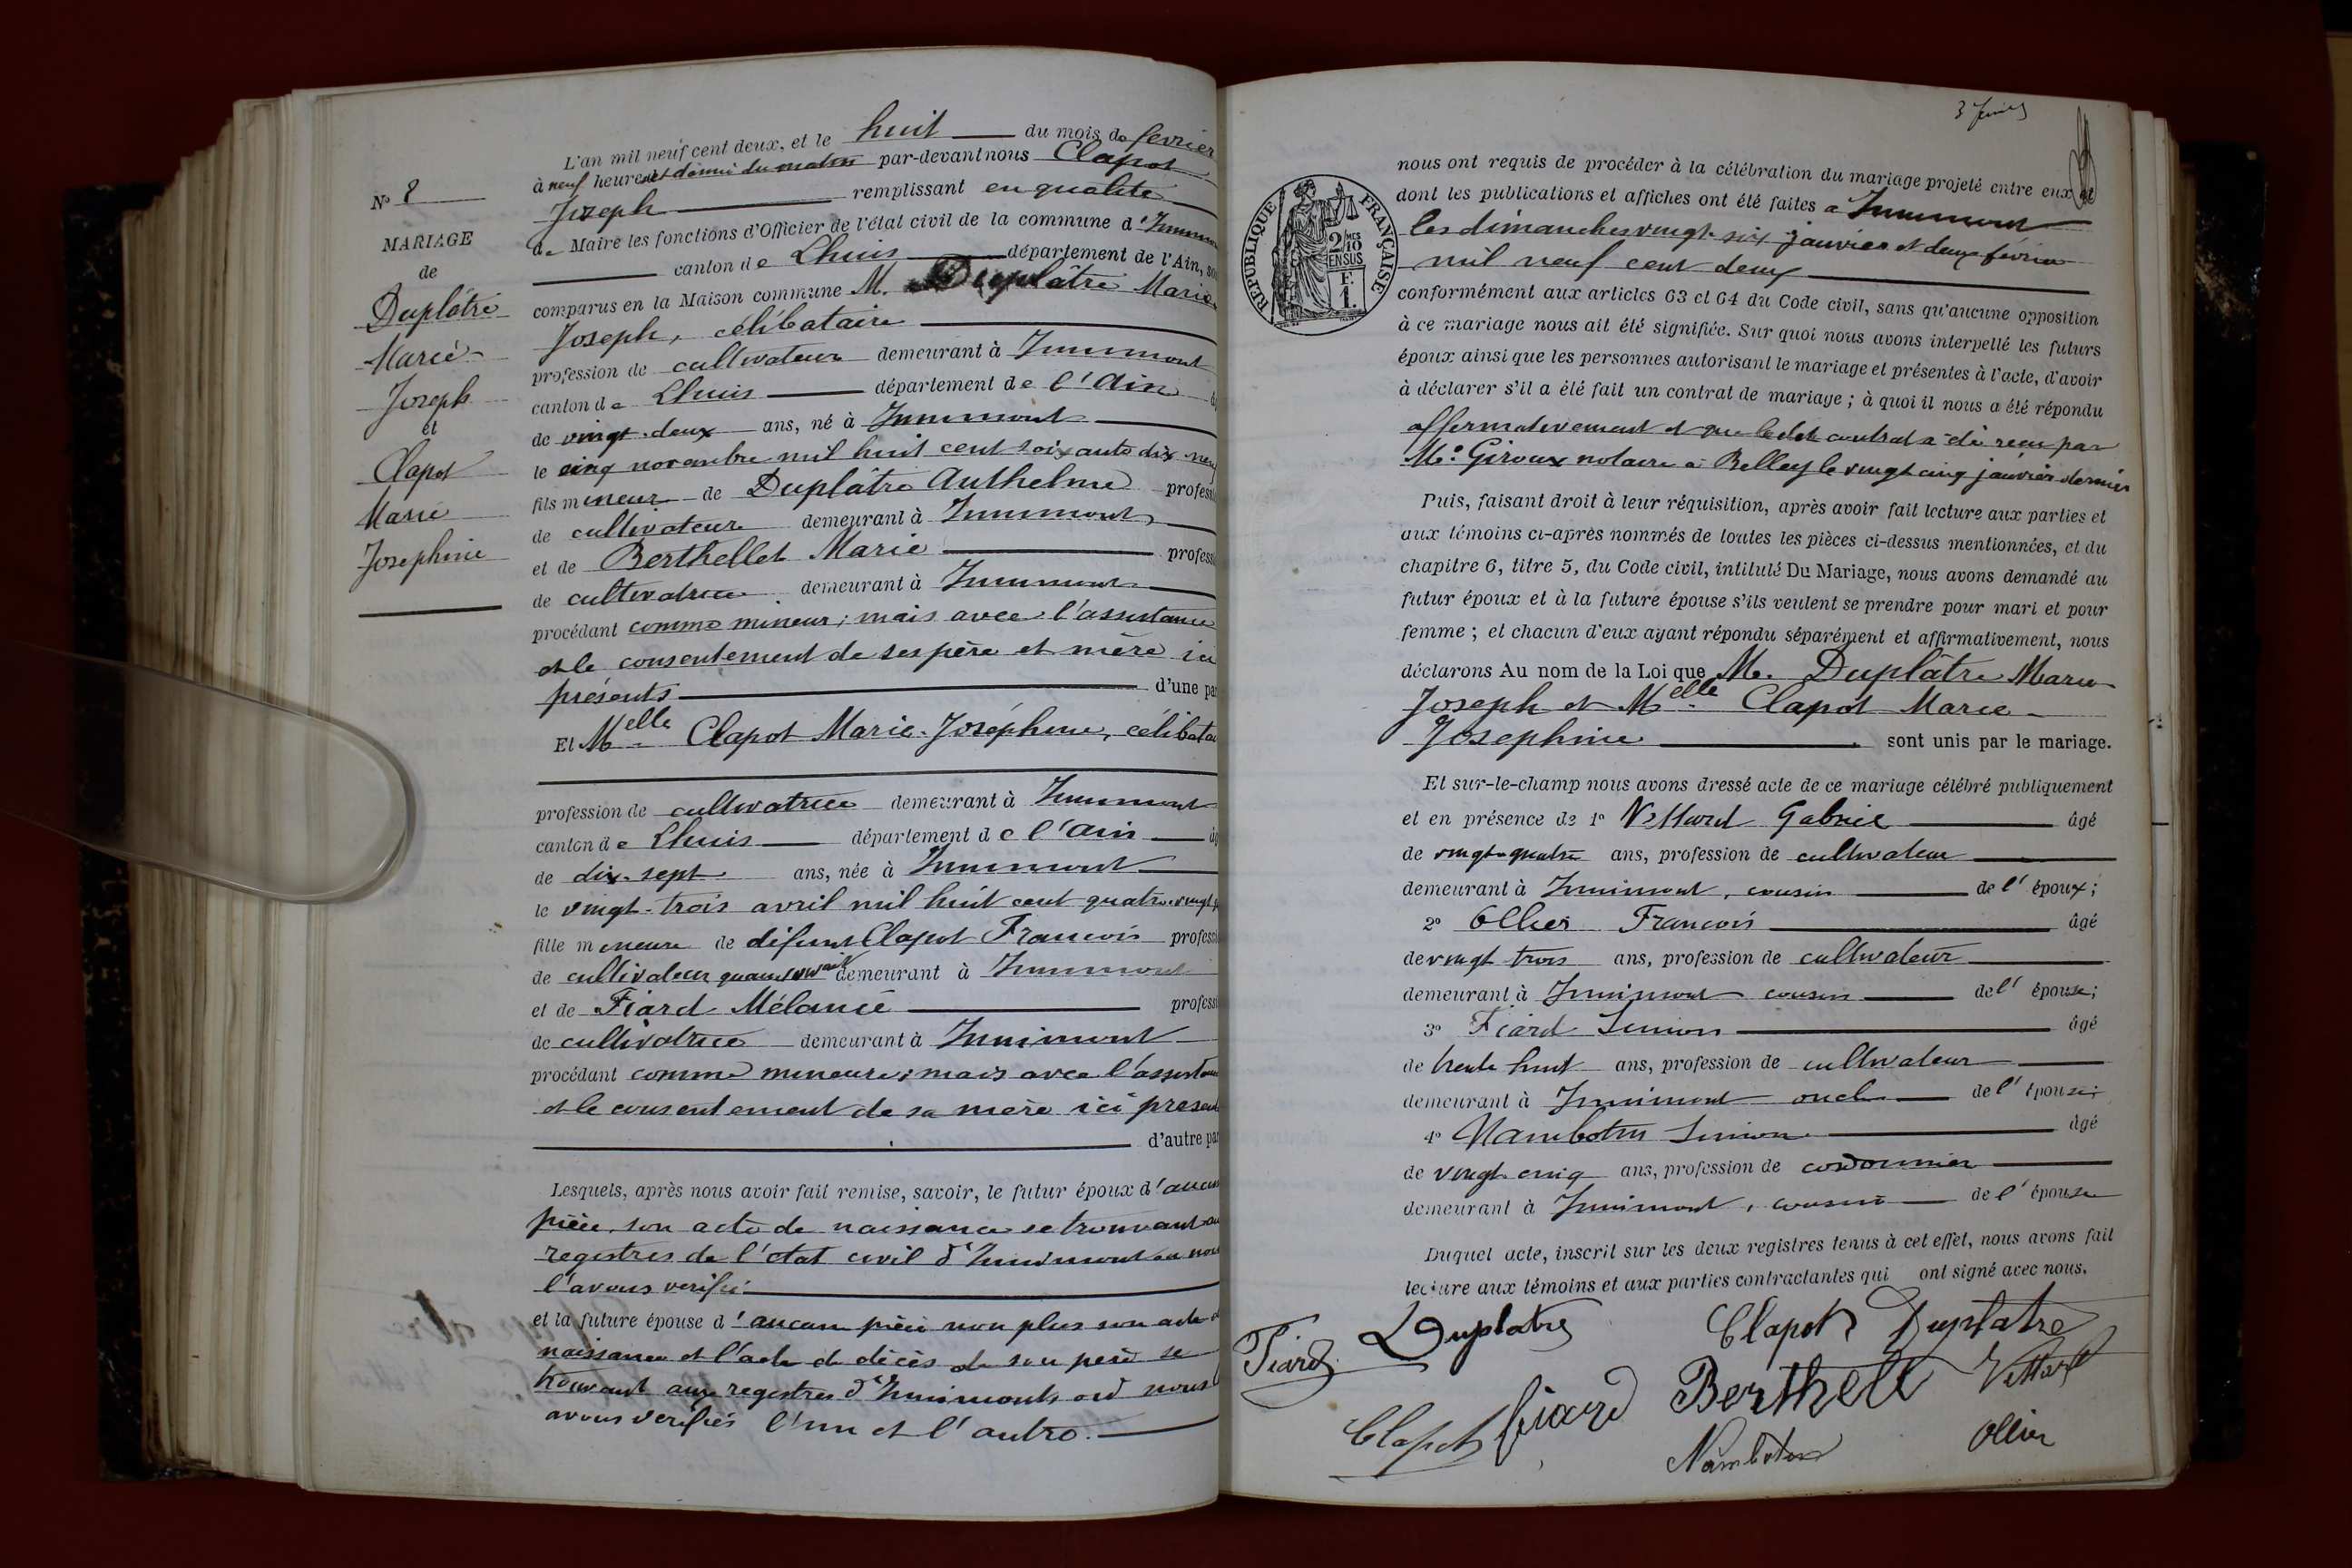 L'an mil neuf cent deux, et le huit du mois de fevrier
à neuf heures et demie du matin par-devant nous Clapot
Joseph remplissant en qualité
de Maire les fonctions d'Officier de l'état civil de la commune d'Innimont
canton de Lhuis département de l'Ain, sont
comparus en la Maison commune M. Duplâtre Marie
Joseph, célibataire
profession de cultivateur demeurant à Innimont
canton de Lhuis département de l'Ain
de vingt-deux ans, né à Innimont
le cinq novembre mil huit cent soixante dix neuf
fils mineur de Duplâtre Anthelme profession
de cultivateur demeurant à Innimont
et de Berthellet Marie profession
de cultivatrice demeurant à Innimont
procédant comme mineur; mais avec l'assistance
et le consentement de ses père et mère ici
présents d'une part
Et Melle Clapot Marie-Joséphine, célibataire
profession de cultivatrice demeurant à Innimont
canton de Lhuis département de l'Ain âg
de dix-sept ans, née à Innimont
le vingt-trois avril mil huit cent quatre-vingt
fille mineure de défunt Clapot François profession
de cultivateur quand vivait demeurant à Innimont
et de Fiard Mélanie profession
de cultivatrice demeurant à Innimont
procédant comme mineure; mais avec l'assistance
et le consentement de sa mère ici présente
d'autre part
Lesquels, après nous avoir fait remise, savoir, le futur époux d'aucune
pièce, son acte de naissance se trouvant aux
registres de l'état civil d'Innimont où nous
l'avons vérifié
et la future épouse d'aucune pièce non plus son acte de
naissance et l'acte de décès de son père se
trouvant aux registres d'Innimont, où nous les
avons vérifiés l'un et l'autre.
Nº 8
MARIAGE
de
Duplâtre
Marie-
Joseph
et
Clapot
Marie
Josephine
nous ont requis de procéder à la célébration du mariage projeté entre eux et
dont les publications et affiches ont été faites à Innimont
les dimanches vingt-six janvier et deux février
mil neuf cent deux
conformément aux articles 63 et 64 du Code civil, sans qu'aucune opposition
à ce mariage nous ait été signifiée. Sur quoi nous avons interpellé les futurs
époux ainsi que les personnes autorisant le mariage et présentes à l'acte, d'avoir
à déclarer s'il a été fait un contrat de mariage; à quoi il nous a été répondu
affirmativement et que ledit contrat a été reçu par
Me Giroux notaire à Belley le vingt cinq janvier dernier
Puis, faisant droit à leur réquisition, après avoir fait lecture aux parties et
aux témoins ci-après nommés de toutes les pièces ci-dessus mentionnées, et du
chapitre 6, titre 5, du Code civil, intitulé Du Mariage, nous avons demandé au
futur époux et à la future épouse s'ils veulent se prendre pour mari et pour
femme; et chacun d'eux ayant répondu séparément et affirmativement, nous
déclarons Au nom de la Loi que M. Duplâtre Marie
Joseph et Melle Clapot Marie-
Josephine sont unis par le mariage.
Et sur-le-champ nous avons dressé acte de ce mariage célébré publiquement
et en présence de 1º Vettard Gabriel âgé
de vingt-quatre ans, profession de cultivateur
demeurant à Innimont, cousin de l'époux;
2º Ollier François âgé
de vingt trois ans, profession de cultivateur
demeurant à Innimont cousin de l'épouse;
3º Fiard Simon âgé
de trente huit ans, profession de cultivateur
demeurant à Innimont oncle de l'épouse;
4º Nambotin Simon âgé
de vingt-cinq ans, profession de cordonnier
demeurant à Innimont, cousin de l'épouse
Duquel acte, inscrit sur les deux registres tenus à cet effet, nous avons fait
lecture aux témoins et aux parties contractantes qui ont signé avec nous.
Fiard Duplatre Clapot Duplatre
Clapot Fiard Berthelet Vettard
Nambotin Ollier
REPUBLIQUE FRANÇAISE
2/10 MES
EN SUS
F.
1.